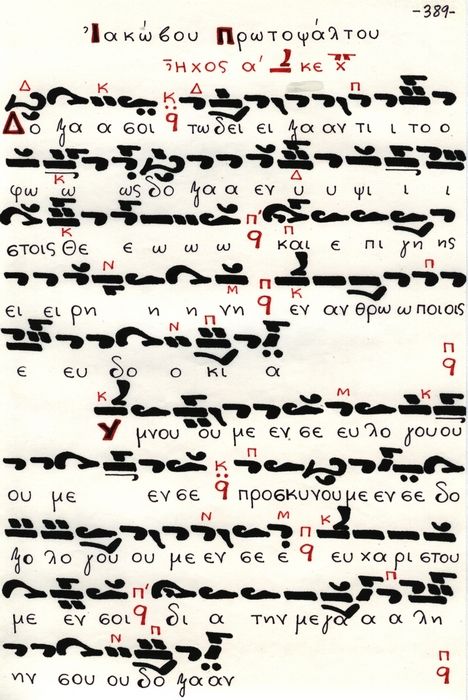 -389-
Ἰακώβου Πρωτοψάλτου
Ἦχος α' κε χ
Δο ξα α σοι τω δει ει ξα αν τι ι το ο
φω ω ως δο ξα α εν υ υ ψι ι ι
στοις Θε ε ω ω ω και ε πι γη ης
ει ει ρη η η νη εν αν θρω ω ποιοις
ε ευ δο ο κι α
Υ μνου ου με εν σε ευ λο γου ου
ου με εν σε προσκυνουμε εν σε δο
ξο λο γου ου με εν σε ε ευ χα ρι στου
με εν σοι δι α την μεγα α α λη
ην σου ου δο ξα αν